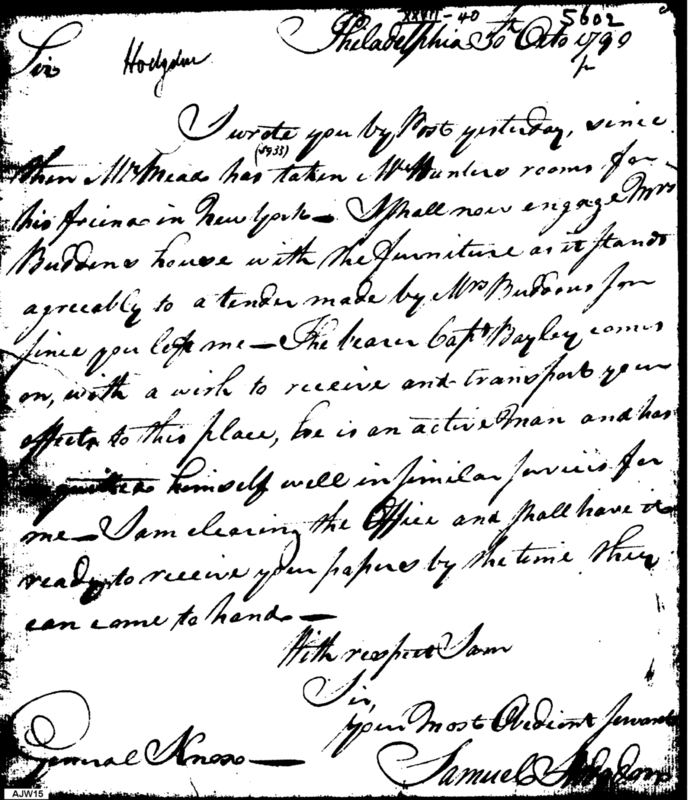 XXVII-40 5602
Philadelphia 30th Octo 1790
Sir Hodgdon
I wrote you by Post yesterday, since
(J933)
then Mr Mead has taken Mr Hunters rooms for
his friend in New York — I shall now engage Mrs
Buddens house with the furniture as it stands
agreeably to a tender made by Mrs Buddens son
since you left me — The bearer Capt Bayley comes
on, with a wish to receive and transport your
effects to this place, he is an active Man and has
acquitted himself well in similar services for
me — I am clearing the Office and shall have it
ready to receive your papers by the time they
can come to hand —
With respect I am
Sir,
your Most Obedient servant
General Knox — Samuel Hodgdon
AJW15